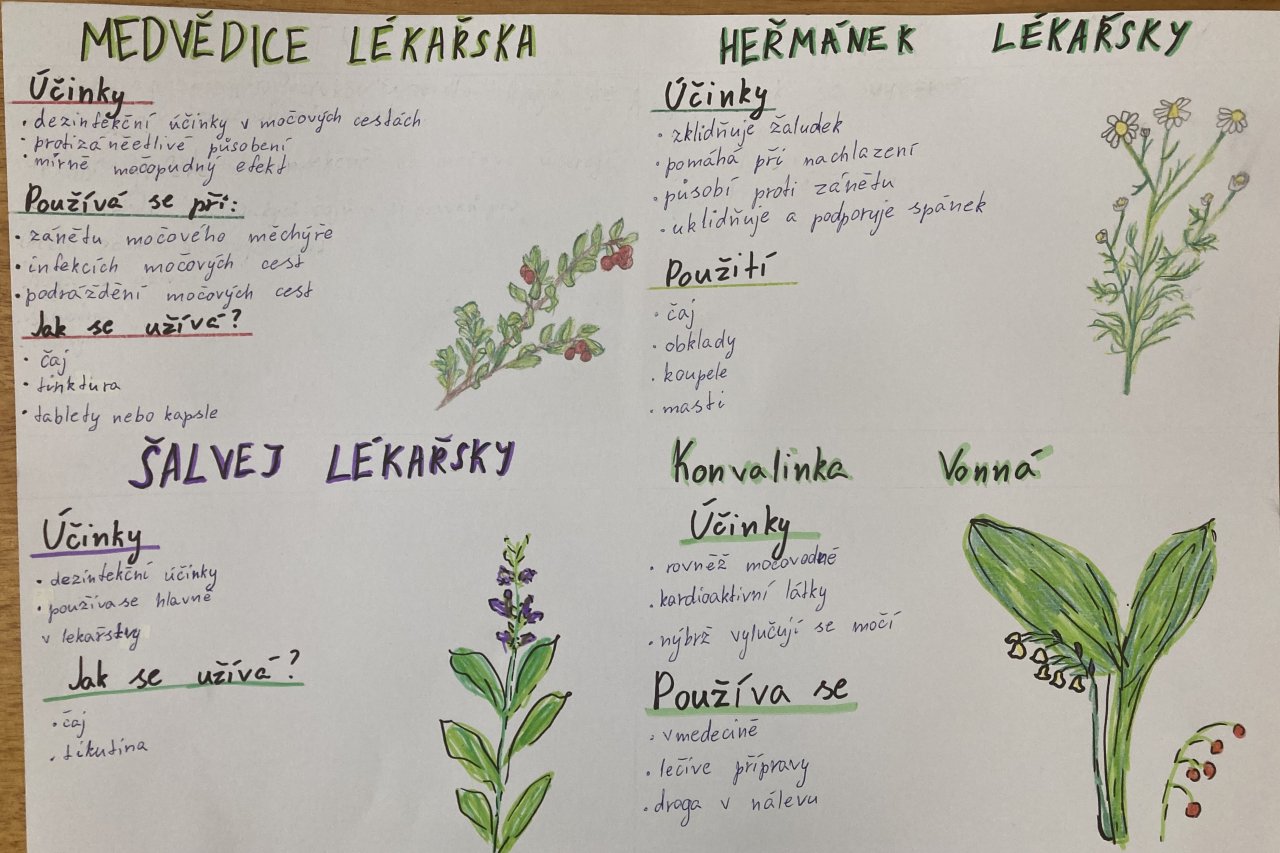 MEDVĚDICE LÉKAŘSKA
Účinky
• dezinfekční účinky v močových cestách
• protizáněetlivé působení
• mírně močopudný efekt
Používá se při:
• zánětu močového měchýře
• infekcích močových cest
• podráždění močových cest
Jak se užívá?
• čaj
• tinktura
• tablety nebo kapsle
HEŘMÁNEK LÉKAŘSKY
Účinky
• zklidňuje žaludek
• pomáhá při nachlazení
• působí proti zánětu
• uklidňuje a podporuje spánek
Použití
• čaj
• obklady
• koupele
• masti
ŠALVEJ LÉKAŘSKY
Účinky
• dezinfekční účinky
• používa se hlavně
v lekařstvy
Jak se užívá?
• čaj
• tikutina
Konvalinka Vonná
Účinky
• rovněž močovodně
• kardioaktivní látky
• nýbrž vylučují se močí
Používa se
• vmedecině
• lečíve přípravy
• droga v nálevu